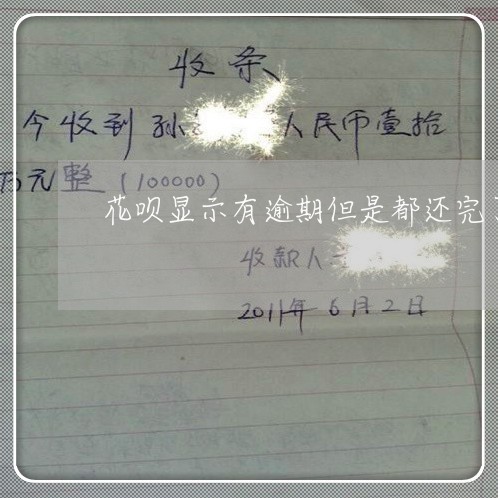 收条
今收到孙 人民币壹拾
万元整（100000）
花呗显示有逾期但是都还完
收款人
2011年6月2日